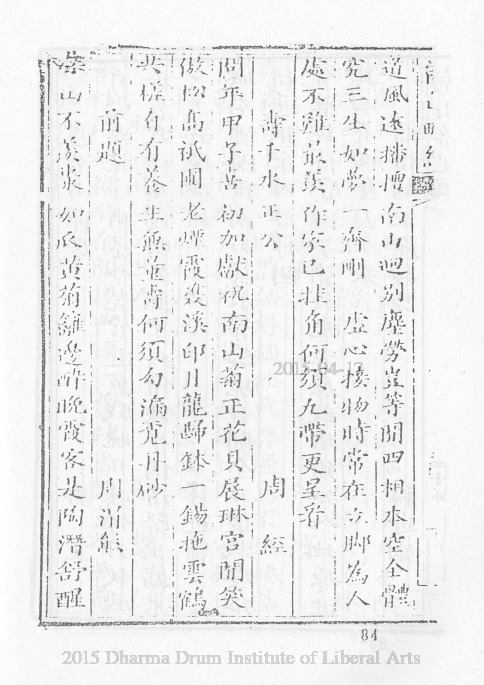 道風遠播擅南山迥別塵勞豈等閒四相本空全體
究三生如夢一齊刪 虛心接物時常在立腳為人
處不難最羨作家已挂角何須九帶更呈看
壽千水正公 周 經
問年甲子喜初加獻祝南山菊正花貝展琳宮開笑
傲松高祇園老煙霞裁溪印月龍歸鉢一錫拖雲鶴
共槎自有養生無量壽何須勾漏覓丹砂
前題 周渭熊
山不羨棗如瓜黃菊籬邊醉晚霞客是陶潛舒醒
2015-04-13
84
2015 Dharma Drum Institute of Liberal Arts